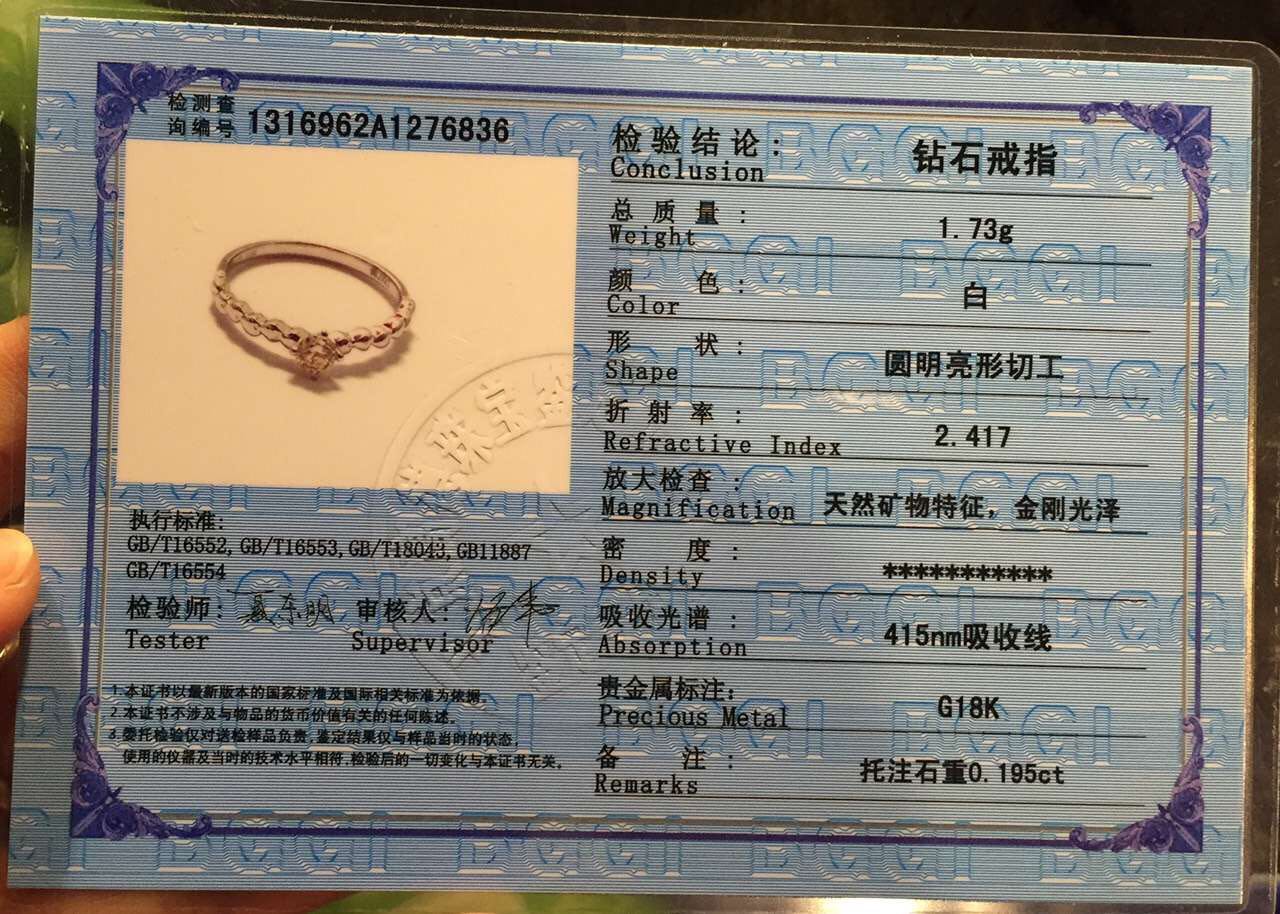 检测查
询编号 1316962A1276836
检验结论： 钻石戒指
Conclusion
总质量： 1.73g
Weight
颜色： 白
Color
形状： 圆明亮形切工
Shape
折射率： 2.417
Refractive Index
放大检查： 天然矿物特征，金刚光泽
Magnification
密度： ***********
Density
吸收光谱： 415nm吸收线
Absorption
贵金属标注： G18K
Precious Metal
备注： 托注石重0.195ct
Remarks
珠宝
执行标准：
GB/T16552,GB/T16553,GB/T18043,GB11887
GB/T16554
检验师： 审核人：
Tester Supervisor
1.本证书以最新版本的国家标准及国际相关标准为依据。
2.本证书不涉及与物品的货币价值有关的任何陈述。
3.委托检验仅对送检样品负责，鉴定结果仅与样品当时的状态，
使用的仪器及当时的技术水平相符，检验后的一切变化与本证书无关。
BGGI